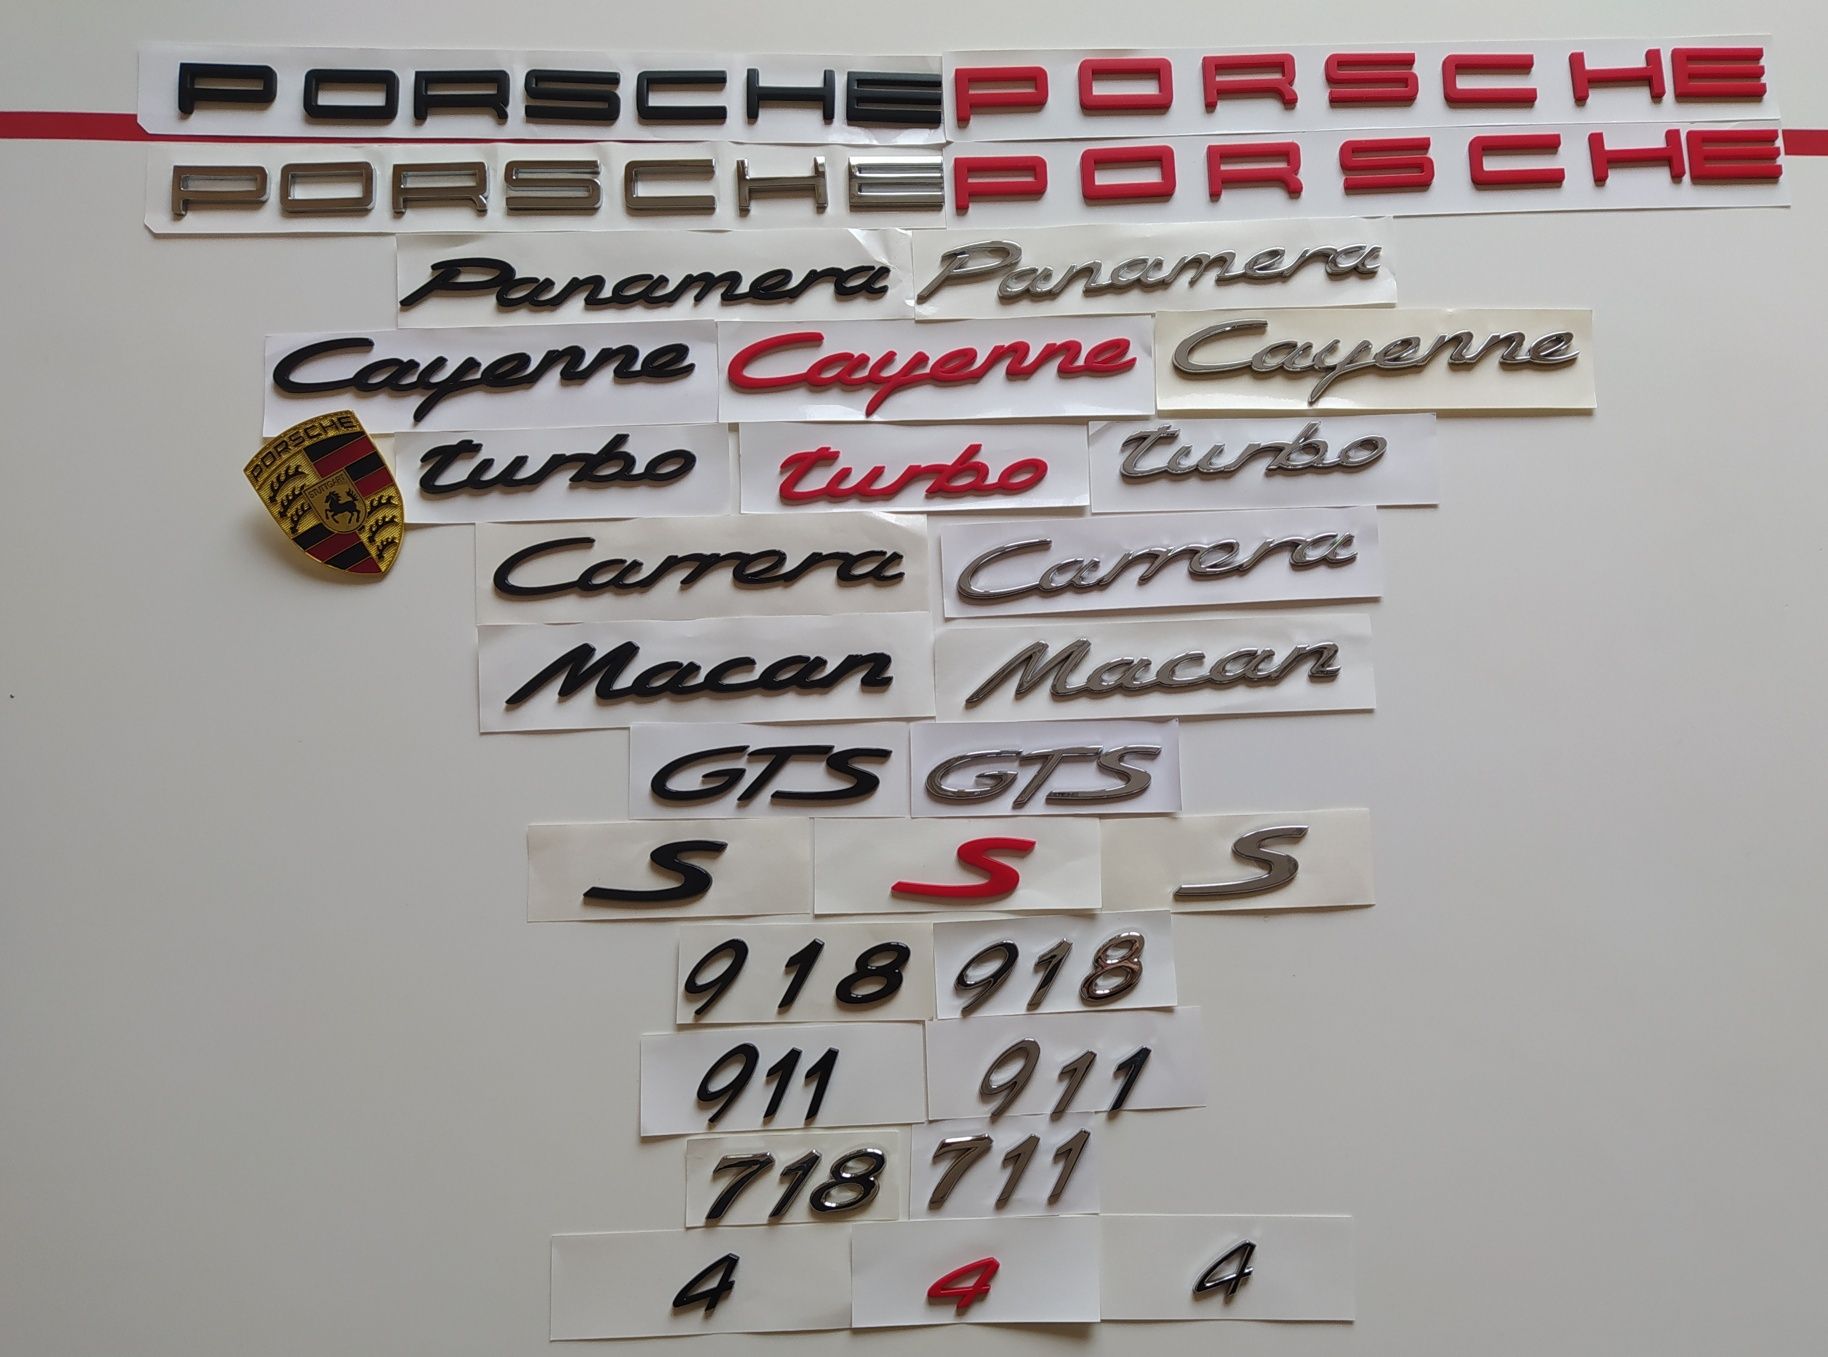 PORSCHE PORSCHE
PORSCHE PORSCHE
Panamera Panamera
Cayenne Cayenne Cayenne
PORSCHE
STUTTGART
turbo turbo turbo
Carrera Carrera
Macan Macan
GTS GTS
S S S
918 918
911 911
718 711
4 4 4